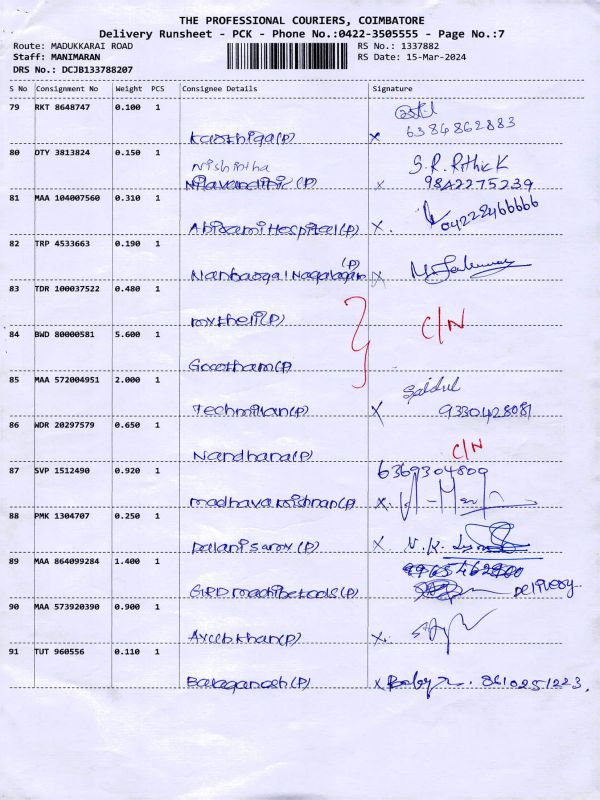 THE PROFESSIONAL COURIERS, COIMBATORE
Delivery Runsheet - PCK - Phone No.:0422-3505555 - Page No.:7
Route: MADUKKARAI ROAD
RS No.: 1337882
Staff: MANIMARAN
RS Date: 15-Mar-2024
DRS No.: DCJB133788207
S No Consignment No Weight PCS Consignee Details Signature
79 RKT 8648747 0.100 1
Karthiga(P) x 6384862883
80 DTY 3813824 0.150 1
Nishintha S.R. Rithick
(P) x 9842275239
81 MAA 104007560 0.310 1
Abirami Hospital(P) x. 04222466666
82 TRP 4533663 0.190 1
(P)
x
83 TDR 100037522 0.480 1
mytheli(P)
C/N
84 BWD 80000581 5.600 1
Gowtham(P)
85 MAA 572004951 2.000 1
Saidul
Techmikan(P) x 9330428081
86 WDR 20297579 0.650 1
Nandhana(P) C/N
87 SVP 1512490 0.920 1
6369304809
madhava krishnan(P) x.
88 PMK 1304707 0.250 1
(P) x N.K.
89 MAA 864099284 1.400 1
(P) Delivery
90 MAA 573920390 0.900 1
Ayub khan(P) x.
91 TUT 960556 0.110 1
Balaganesh(P) x 8610251223.